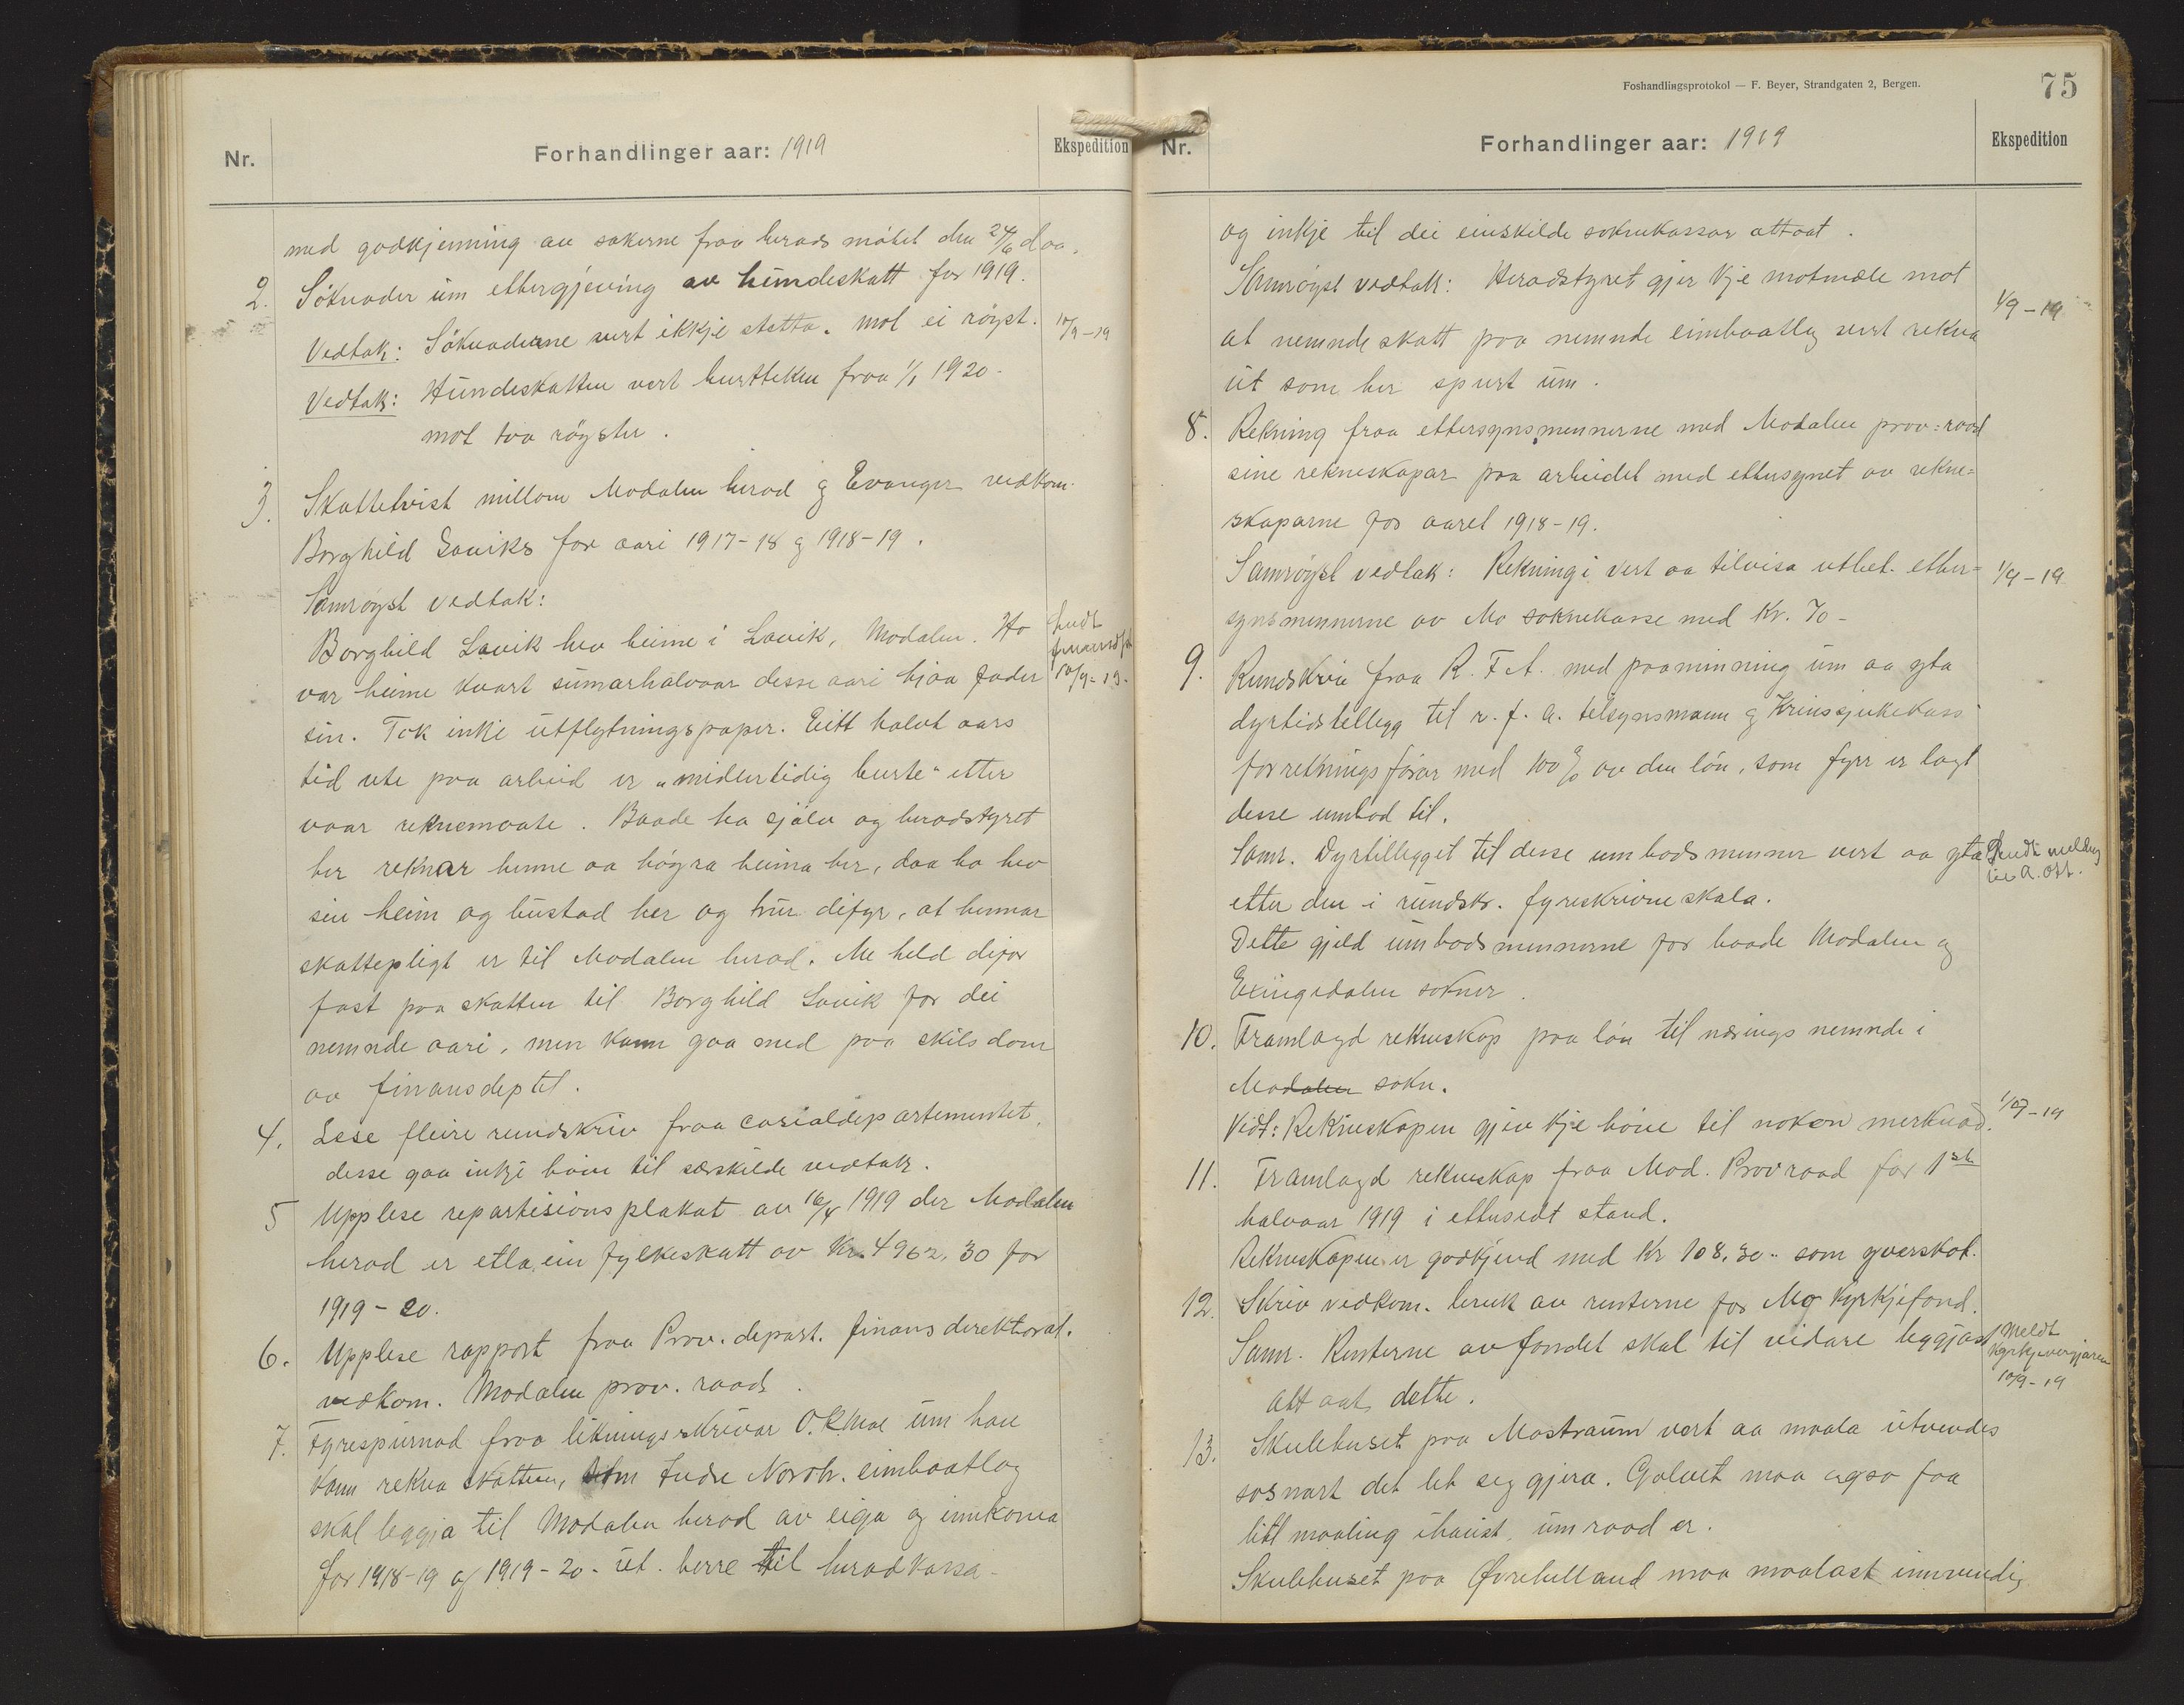 Nr.
Forhandlinger aar: 1919
Ekspedition
med godkjenning av sakerne fraa herads mötet den 24/6 d aa.
2. Söknader um ettergjeving av hundeskatt for 1919.
Vedtak: Söknaderne vert ikkje stetta. mot ei röyst. 10/9-19
Vedtak: Hundeskatten vert burtteken fraa 1/1 1920-
mot tvo röyster.
3. Skattetvist millom Modalen herad og Evanger vedkom.
Borghild Laviks for aari 1917-18 og 1918-19.
Samröyst vedtak:
Borghild Lavik hev heime i Lavik, Modalen. Ho
var heime kvart sumarhalvaar desse aari hjaa fader 10/9-19.
sin. Tok inkje utflytningspaper. Eitt halvt aars
tid ute paa arbeid er "midlertidig burte" etter
vaar reknemaate. Baade ho sjölv og heradstyret
her reknar henne aa högra heima her, daa ho hev
sin heim og bustad her og trur difyr, at hennar
skattepligt er til Modalen herad. Me held difor
fast paa skatten til Borghild Lavik for dei
nemnde aari, men kann gaa med paa skilsdom
av finansdeptet.
4. Lese fleire rundskriv fraa cosialdepartementet,
desse gav inkje höve til særskilde vedtak.
5 Upplese repartisionsplakat av 16/4 1919 der Modalen
herad er etla ein fylkeskatt av Kr. 4962,30 for
1919-20.
6. Upplese rapport fraa Prov. depart. finansdirektorat.
vedkom. Modalen prov. raad.
7. Fyrespurnad fraa likningsskrivar O. R. Moe um han
kann rekna skatten, som Indre Nordh. eimbaatlag
skal leggja til Modalen herad av eiga og innkoma
for 1918-19 og 1919-20- ut. berre til heradkassa-
Foshandlingsprotokol — F. Beyer, Strandgaten 2, Bergen.
75
Nr.
Forhandlinger aar: 1919
Ekspedition
og inkje til dei einskilde soknekassar attaat.
Samröyst vedtak: Heradstyret gjer kje motmæle mot
at nemnde skatt paa nemnde eimbaatlag vert rekna 1/9-19
ut som her spurt um.
8. Rekning fraa ettersynsmennerne med Modalen prov=raad
sine rekneskapar paa arbeidet med ettersynet av rekne=
skaparne for aaret 1918-19.
Samröyst vedtak: Rekningi vert aa tilvisa utbet. etter= 1/9-19
synsmennerne av Mo soknekasse med Kr. 70-
9. Rundskriv fraa R. F. A. med paaminning um aa yta
dyrtidstillegg til r. f. a. tilsynsmann og Krinssjukekass
forretningsförar med 100% av den lön, som fyrr er lagt
desse umbod til.
Samr. Dyrtillegget til desse umbodsmenner vert aa yta Sendt melding
etter den i rundskr. fyreskrivne skala.
Dette gjeld umbodsmennerne for baade Modalen og
Exingedalen sokner.
10. Framlagd rekneskap paa lön til nærings nemnde i
Modalen sokn.
Vedt: Rekneskapen gjev kje höve til nokon merknad. 1/9-19
11. Framlagd rekneskap fraa Mod. Provraad for 1ste
halvaar 1919 i ettersedt stand.
Rekneskapen er godkjend med Kr 108,30.- som yverskot.
12. Skriv vedkom. bruk av renterne for Mo Kyrkjefond.
Samr. Renterne av fondet skal til vidare leggjast Meldt
Kyrkjevergjaren
10/9-19
att aat dette.
13. Skulehuset paa Mostraum vert aa maala utvendes
so snart det let seg gjera. Golvet maa ogso faa
litt maaling ihaust, um raad er.
Skulehuset paa Övrehelland maa maalast innvendig